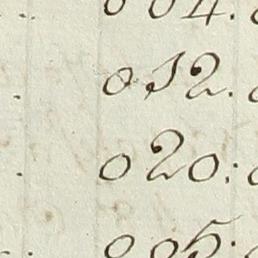 004.
012.
020:
005.